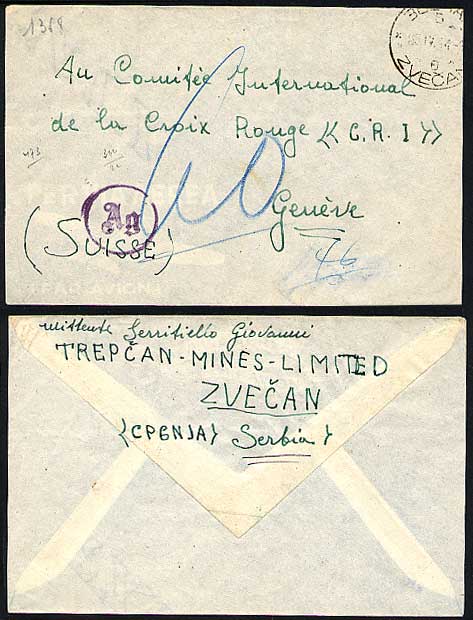 1368
ZVEČAN
Au Comitée International
de la Croix Rouge <<C.R.I>>
Genève
(SUISSE)
Ag
60
46
PAR AVION
mittente Serritiello Giovanni
TREPČAN-MINES-LIMITED
ZVEČAN
{СРБNJA} Serbia}